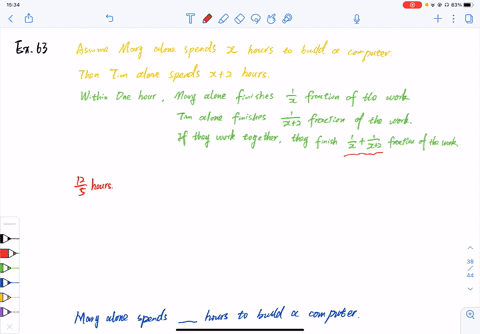 15:34
83%
Ex. 63
Assume Mary alone spends x hours to build a computer.
Then Tim alone spends x+2 hours.
Within One hour, Mary alone finishes 1/x fraction of the work.
Tim alone finishes 1/x+2 fraction of the work.
If they work together, they finish 1/x + 1/x+2 fraction of the work.
12/5 hours.
38
/
44
Mary alone spends __ hours to build a computer.